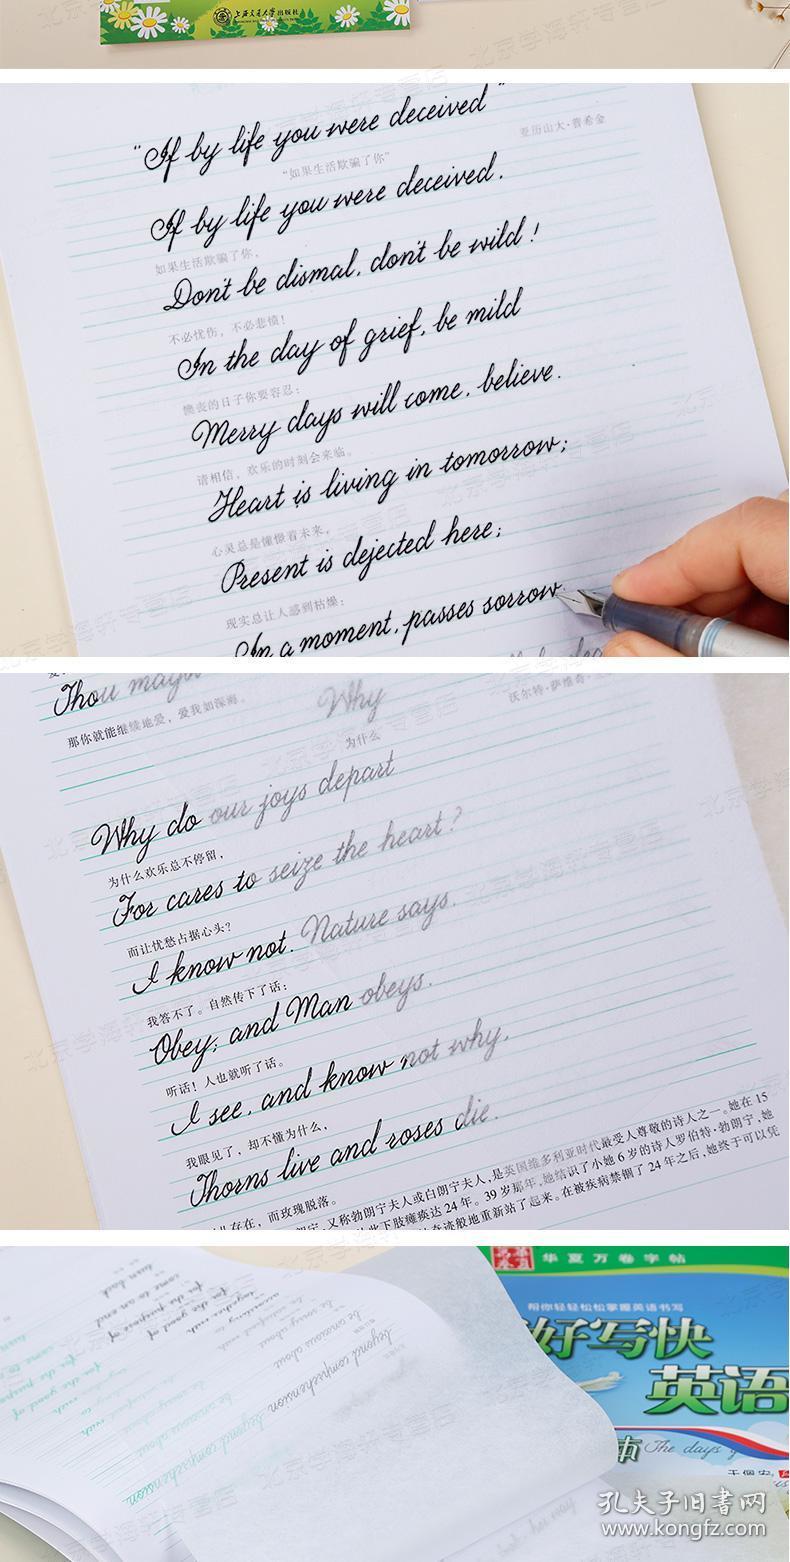 上海交通大学出版社
"If by life you were deceived"
亚历山大·普希金
"如果生活欺骗了你"
If by life you were deceived.
如果生活欺骗了你，
Don't be dismal, don't be wild!
不必忧伤，不必悲愤！
In the day of grief, be mild
懊丧的日子你要容忍：
Merry days will come, believe.
请相信，欢乐的时刻会来临。
Heart is living in tomorrow;
心灵总是憧憬着未来，
Present is dejected here;
现实总让人感到枯燥：
In a moment, passes sorrow
Thou mayst
那你就能继续地爱，爱我如深海。
Why
沃尔特·萨维奇
为什么
Why do our joys depart
为什么欢乐总不停留，
For cares to seize the heart?
而让忧愁占据心头？
I know not. Nature says.
我答不了。自然传下了话：
Obey; and Man obeys.
听话！人也就听了话。
I see, and know not why,
我眼见了，却不懂为什么，
Thorns live and roses die.
存在，而玫瑰脱落。
又称勃朗宁夫人或白朗宁夫人，是英国维多利亚时代最受人尊敬的诗人之一。她在15
下肢瘫痪达24年。39岁那年，她结识了小她6岁的诗人罗伯特·勃朗宁，她
奇迹般地重新站了起来。在被疾病禁锢了24年之后，她终于可以凭
turn back
come to an end
for the purpose of
for the good of
together with
be anxious about
beyond comprehension
华夏万卷字帖
帮你轻轻松松掌握英语书写
好写快
英语
本
The days
孔夫子旧书网
www.kongfz.com